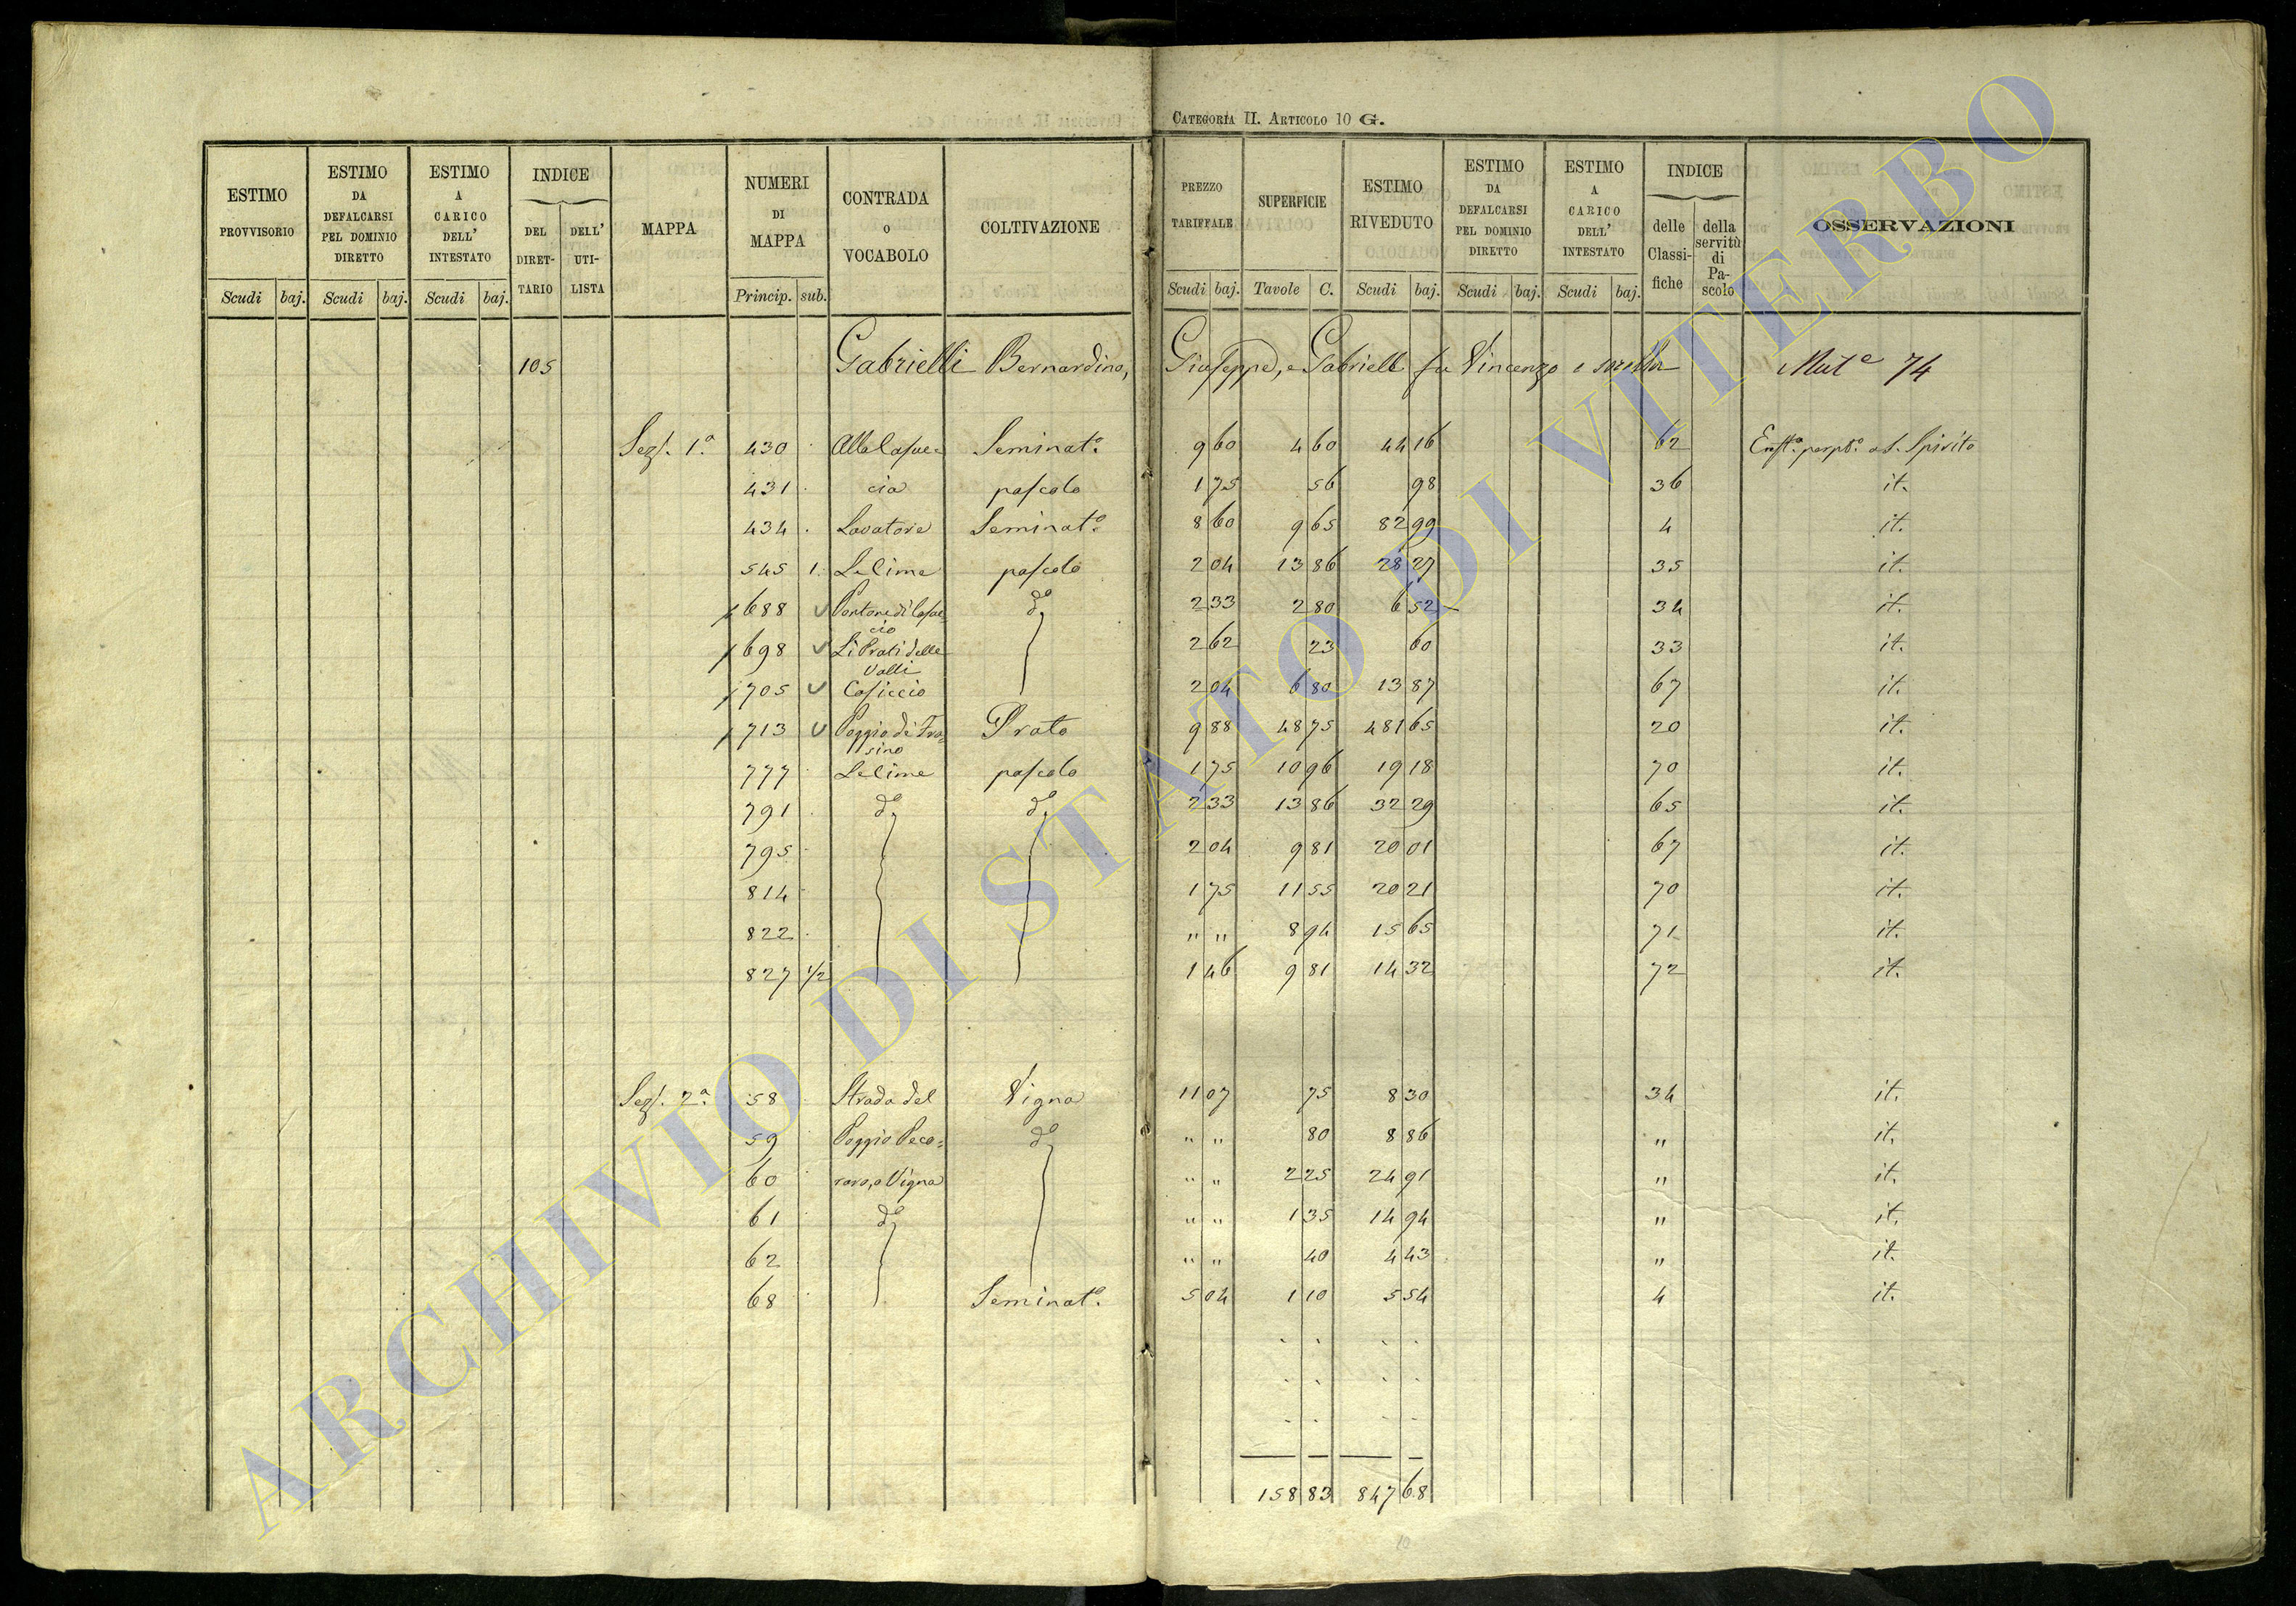 CATEGORIA II. ARTICOLO 10 G.
ESTIMO PROVVISORIO | ESTIMO DA DEFALCARSI PEL DOMINIO DIRETTO | ESTIMO A CARICO DELL' INTESTATO | INDICE DEL DIRET-TARIO | DELL' UTI-LISTA | MAPPA | NUMERI DI MAPPA | CONTRADA O VOCABOLO | COLTIVAZIONE | PREZZO TARIFFALE | SUPERFICIE | ESTIMO RIVEDUTO | ESTIMO DA DEFALCARSI PEL DOMINIO DIRETTO | ESTIMO A CARICO DELL' INTESTATO | INDICE delle Classi-fiche | della servitù di Pa-scolo | OSSERVAZIONI
Scudi baj. Scudi baj. Scudi baj. Princip. sub. Scudi baj. Tavole C. Scudi baj. Scudi baj. Scudi baj.
105 Gabrielli Bernardino, Giuseppe, e Gabriele fu Vincenzo e sorella Mut.e 74
Sez. 1.a 430 Alla Casac= Seminat.o 9 60 4 60 44 16 62 Enft.a perpt.a a S. Spirito
431 cia pascolo 1 75 56 98 36 it.
434 Lavatore Seminat.o 8 60 9 65 82 99 4 it.
545 1. Le lime pascolo 2 04 13 86 28 27 35 it.
688 d.o 2 33 2 80 6 52 34 it.
698 Li Prati delle Valli 2 62 23 60 33 it.
705 Casiccio 2 04 6 80 13 87 67 it.
713 Poggio di Fra=sino Prato 9 88 48 75 481 65 20 it.
777 Le lime pascolo 1 75 10 96 19 18 70 it.
791 d.o d.o 2 33 13 86 32 29 65 it.
795 2 04 9 81 20 01 67 it.
814 1 75 11 55 20 21 70 it.
822 " " 8 94 15 65 71 it.
827 1/2 1 46 9 81 14 32 72 it.
Sez. 2.a 58 Strada del Vigna 11 07 75 8 30 34 it.
59 Poggio Peco= d.o " " 80 8 86 " it.
60 raro, o Vigna " " 2 25 24 91 " it.
61 d.o " " 1 35 14 94 " it.
62 " " 40 4 43 " it.
68 Seminat.o 5 04 1 10 5 54 4 it.
158 83 847 68
10
ARCHIVIO DI STATO DI VITERBO